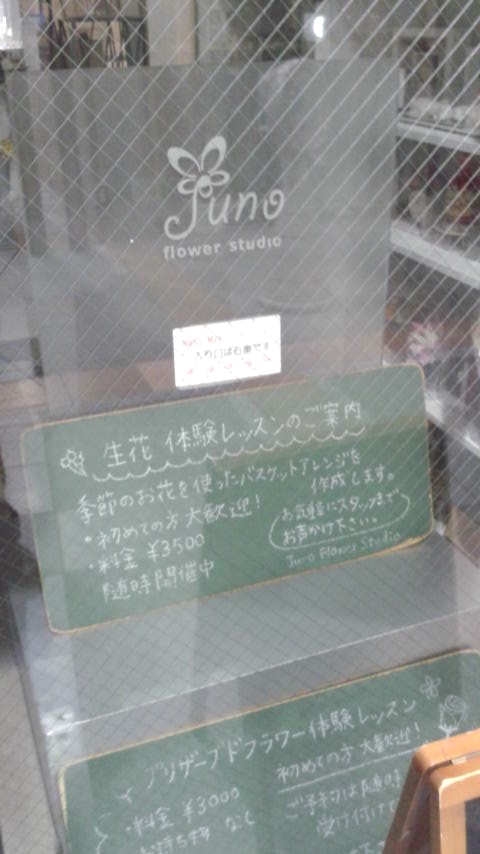 Juno
flower studio
入り口は右奥です
生花 体験レッスンのご案内
季節のお花を使ったバスケットアレンジを
作成します。
・初めての方大歓迎！
・料金 ¥3500
随時開催中
お気軽にスタッフまで
お声かけ下さい。
Juno Flower Studio
プリザーブドフラワー体験レッスン
・料金 ¥3000
お持ち物 なし
初めての方 大歓迎！
ご予約は随時
受け付けて